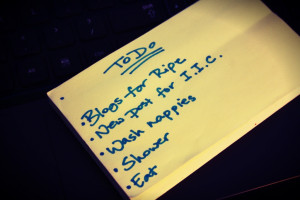 ToDo
• Blogs for Ripe
• New post for I.I.C.
• Wash nappies
• Shower
• Eat